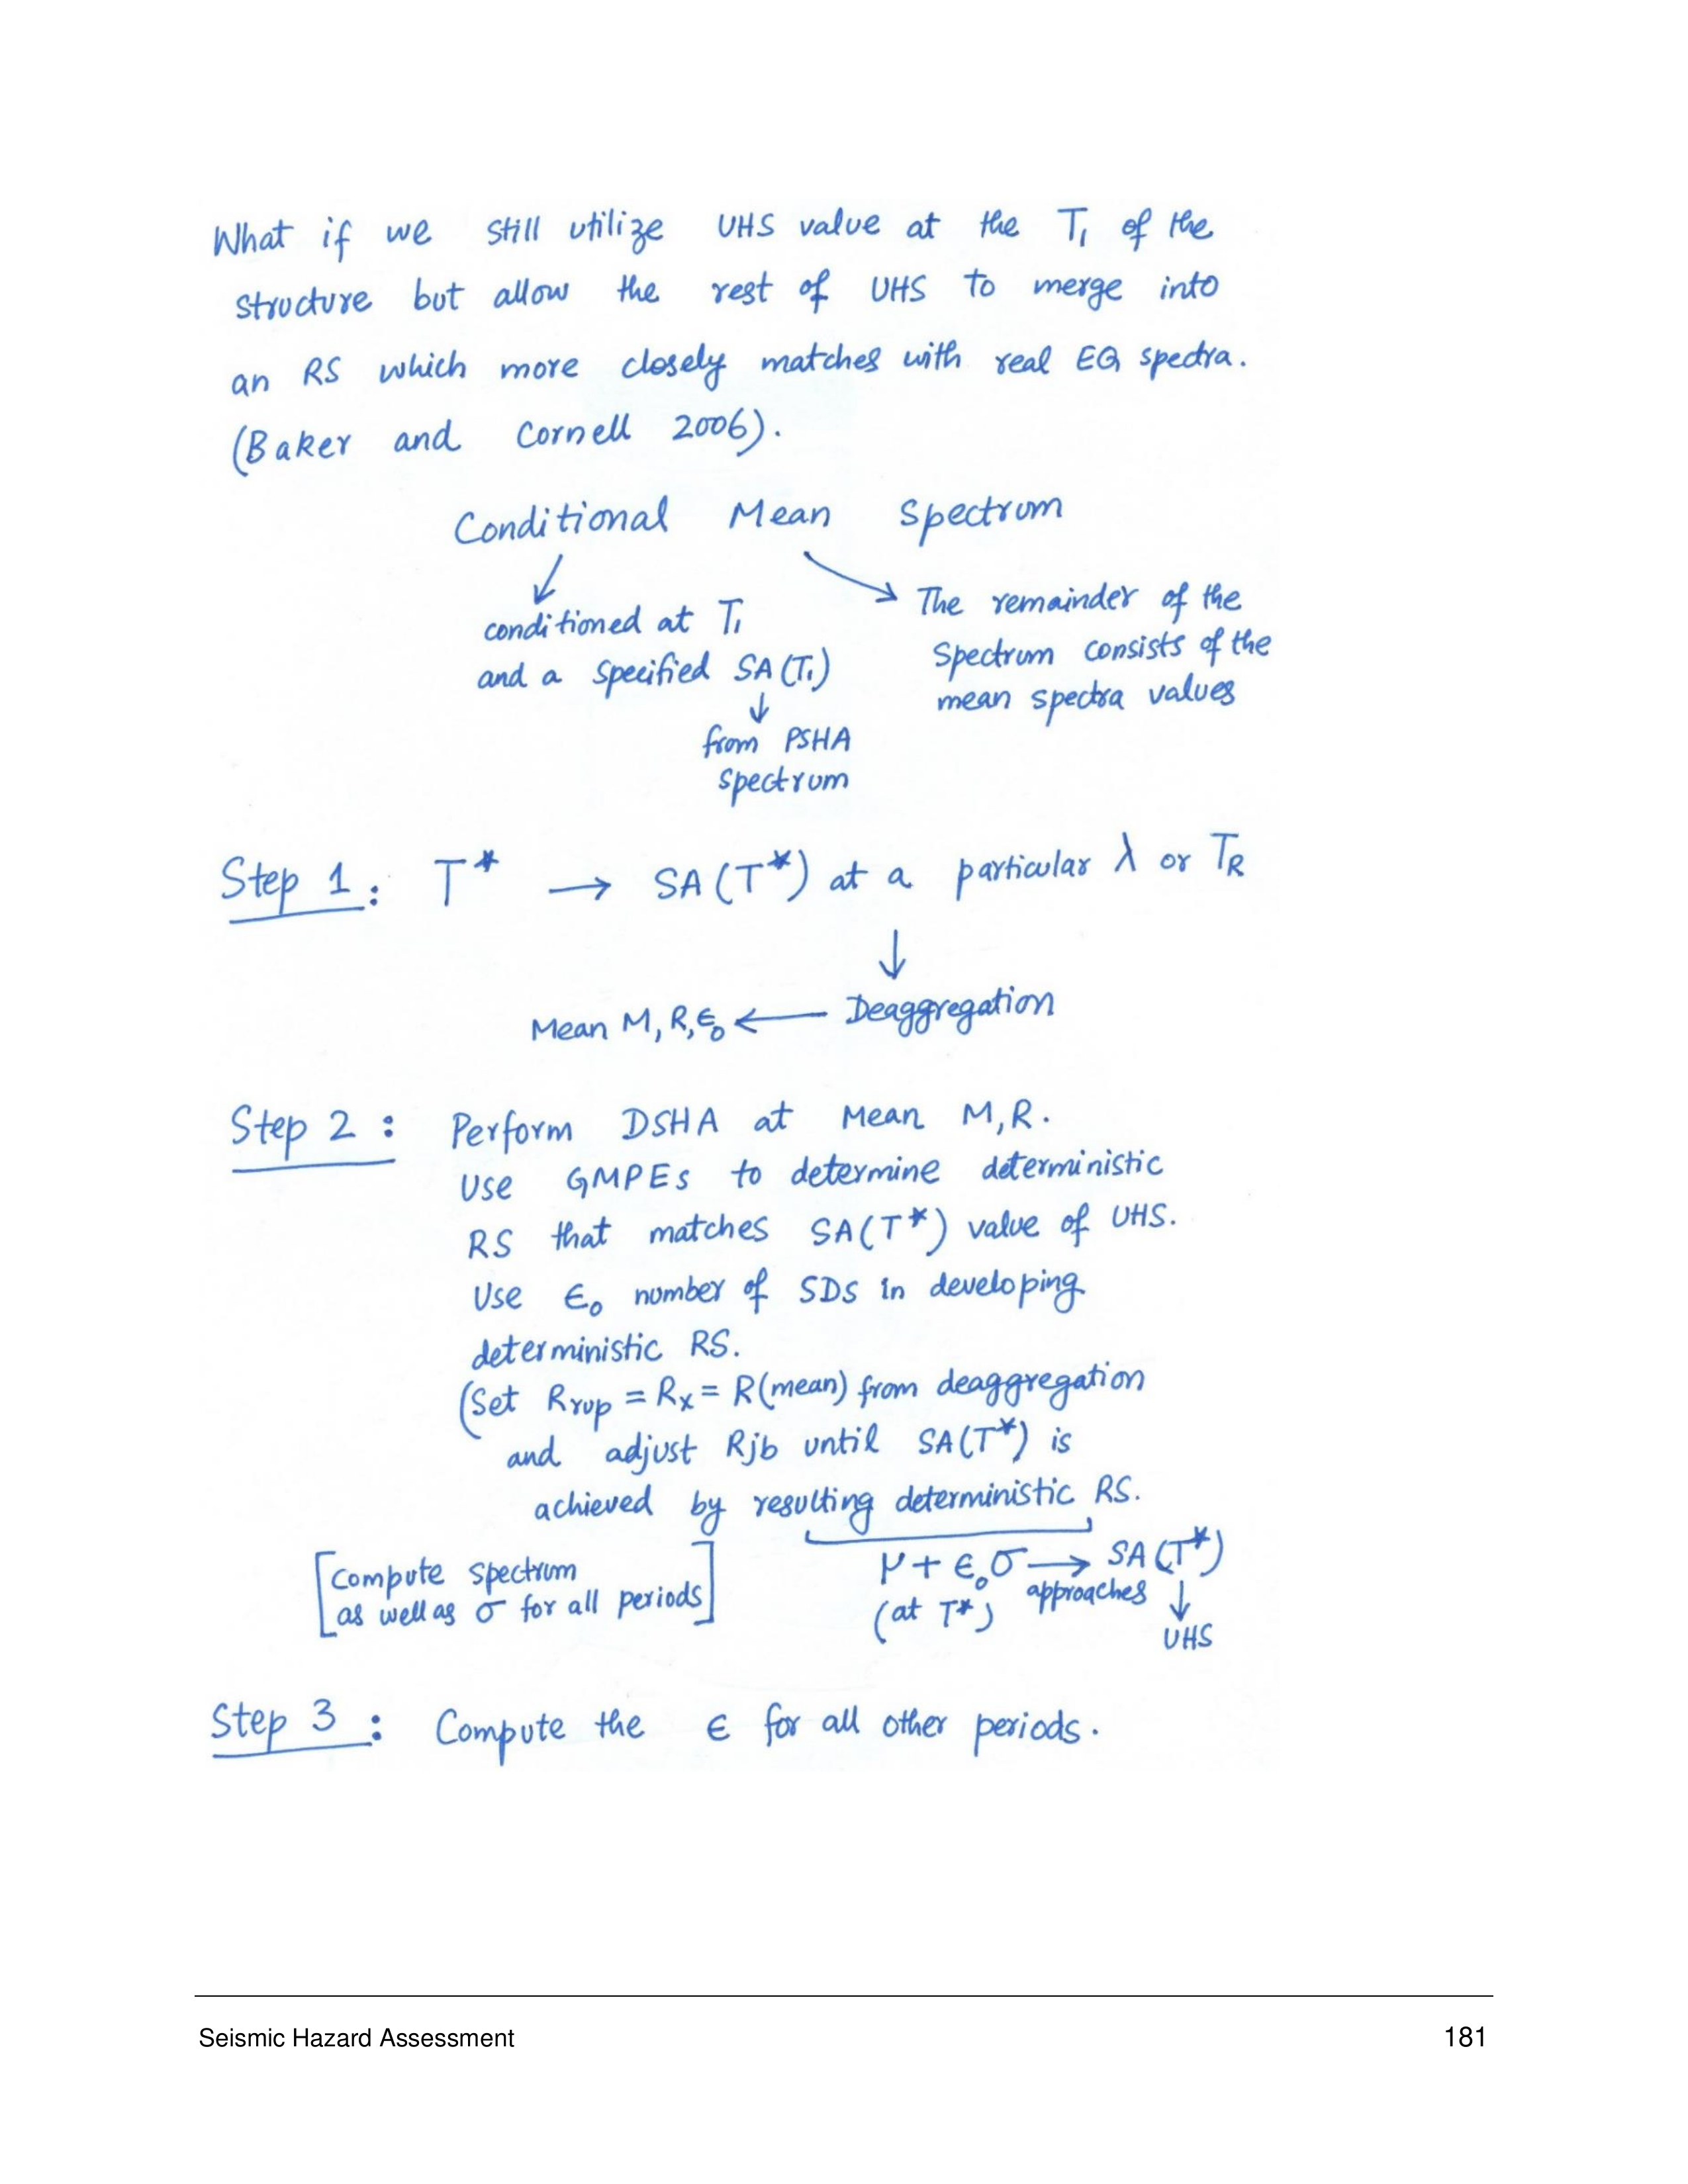 What if we still utilize UHS value at the T₁ of the
structure but allow the rest of UHS to merge into
an RS which more closely matches with real EQ spectra.
(Baker and Cornell 2006).
Conditional Mean Spectrum
conditioned at T₁
and a specified SA(T₁)
from PSHA
spectrum
The remainder of the
Spectrum consists of the
mean spectra values
Step 1: T* → SA(T*) at a particular λ or TR
↓
Mean M, R, ϵ₀ ← Deaggregation
Step 2: Perform DSHA at Mean M,R.
Use GMPEs to determine deterministic
RS that matches SA(T*) value of UHS.
Use ϵ₀ number of SDs in developing
deterministic RS.
(Set Rrup = Rx = R(mean) from deaggregation
and adjust Rjb until SA(T*) is
achieved by resulting deterministic RS.
[compute spectrum
as well as σ for all periods]
μ + ϵ₀σ → SA(T*)
(at T*) approaches ↓
UHS
Step 3: Compute the ϵ for all other periods.
Seismic Hazard Assessment 181